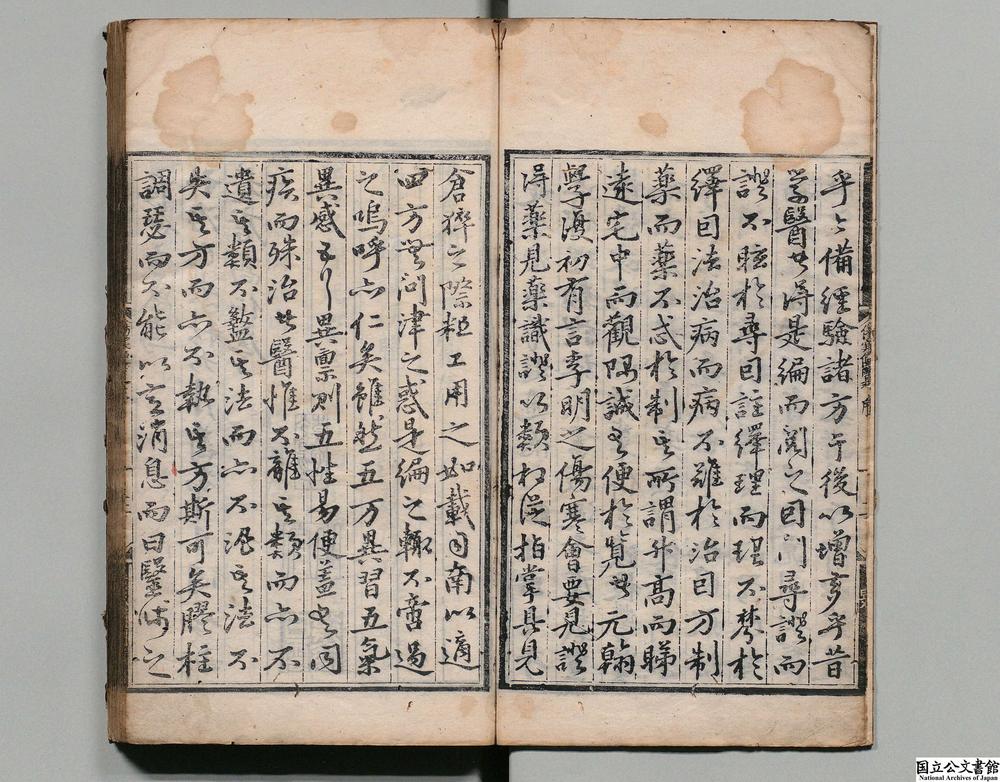 乎々備經驗諸方于後以增多乎昔
学醫者得是編而閱之因門尋證而
證不眩於尋因註繹理而理不棼於
繹因法治病而病不難於治因方制
藥而藥不忒於制其所謂升高而睇
遠宅中而觀隅誠有便於覽者元翰
學漫初有言李明之傷寒會要見證
得藥見藥識證以類相從指掌具見
倉猝之際粗工用之如載司南以適
四方無問津之惑是編之輒不啻過
之嗚呼亦仁矣雖然五方異習五氣
異感五行異禀則五性易便蓋有同
疾而殊治者醫惟不離其類而亦不
遺其類不盭其法而亦不泥其法不
失其方而亦不執其方斯可矣膠柱
調瑟而不能以意消息而曰醫
国立公文書館
National Archives of Japan